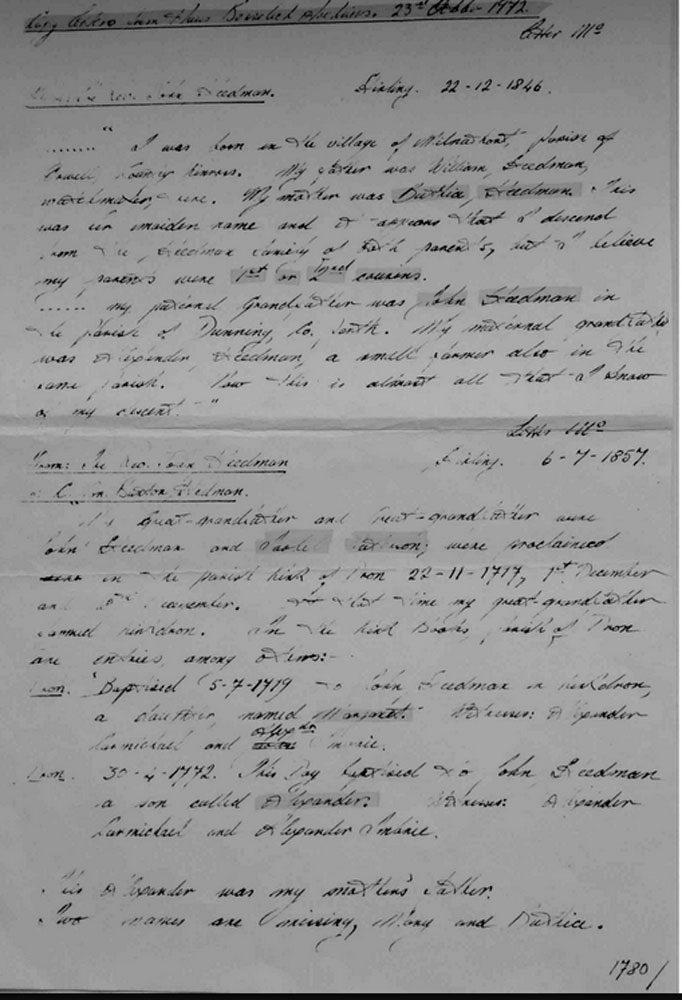 23rd 1972.
Letter No
Rev. John Steedman. Stirling. 22-12-1846.
........ " I was born in the village of Milnathort, parish of
Orwell, County Kinross. My father was William Steedman,
watchmaker, there. My mother was Bathia Steedman. This
was her maiden name and it appears that I descend
from the Steedman family of both parents, but I believe
my parents were 1st or 2nd cousins.
...... my paternal Grandfather was John Steedman in
the parish of Dunning, Co. Perth. My maternal grandfather
was Alexander Steedman, a small farmer also in the
same parish. Now this is almost all that I know
of my descent. "
Letter No
From: The Rev. John Steedman Stirling. 6-7-1857.
Steedman.
My Great-grandfather and Great-grandmother were
John Steedman and were proclaimed
in the parish kirk of Dron 22-11-1717, 1st December
and December. At that time my great-grandfather
farmed Kinkdron. In the kirk Books, parish of Dron
are entries, among others:-
Dron. Baptised 5-7-1719 to John Steedman in Kirkdron,
a daughter, named Margaret. Witnesses: Alexander
Carmichael and Alexdr Imbrie.
Dron. 30-4-1772. This Day baptised to John Steedman
a son called Alexander. Witnesses: Alexander
Carmichael and Alexander Imbrie.
This Alexander was my mother's father.
Two names are missing, Mary and Bathia.
1780/